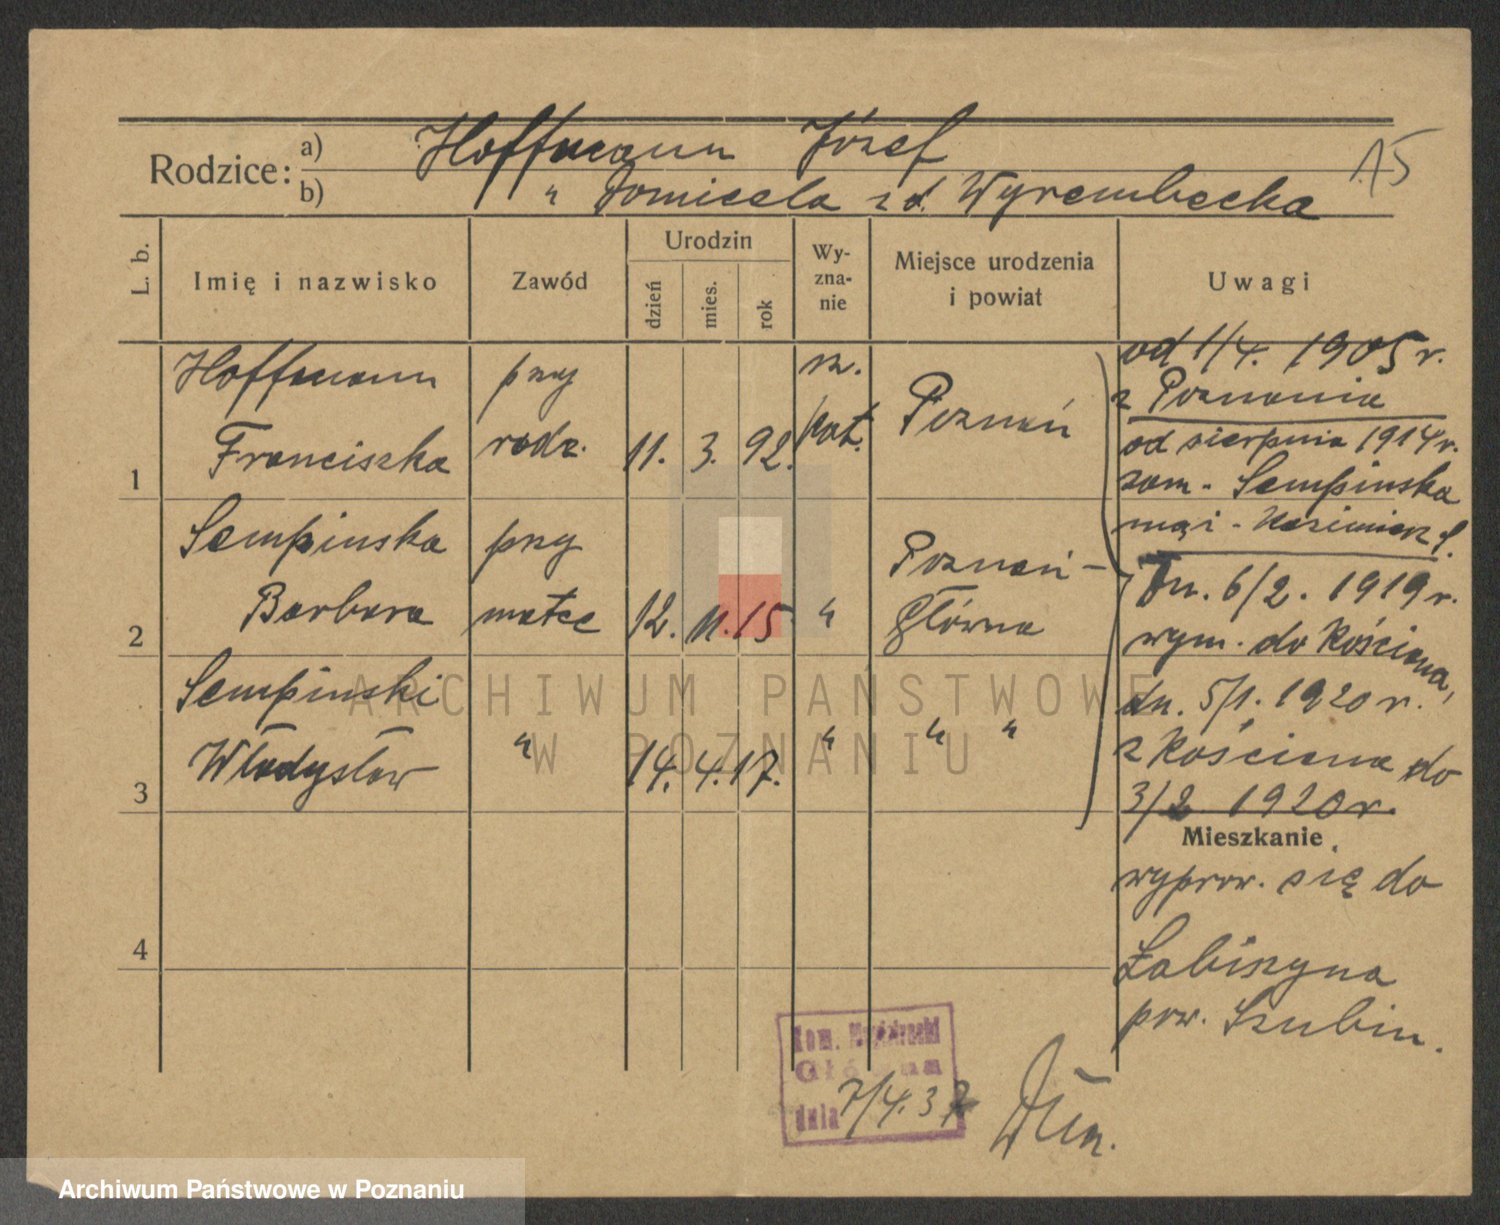 Rodzice: a) Hoffmann Józef
b) " Domicela z d. Wyrembecka
15
L. b. Imię i nazwisko Zawód Urodzin dzień mies. rok Wyznanie Miejsce urodzenia i powiat Uwagi
1 Hoffmann Franciszka przy rodz. 11. 3. 92. rz. kat. Poznań
2 Sempinska Barbara przy matce 12. 11. 15 " Poznań-Główna
3 Sempinski Władysław " 14. 4. 17. " " "
4
od 1/4. 1905 r.
z Poznania
od sierpnia 1914 r.
zam. Sempinska
mąż - Kazimierz S.
Dn. 6/2. 1919 r.
wym. do Kościana,
dn. 5/1. 1920 r.
z Kościana do
3/2 1920 r.
Mieszkanie
wyprow. się do
Łabiszyna
pow. Szubin.
Kom.
Główna
dnia 7/4. 37
ARCHIWUM PAŃSTWOWE
W POZNANIU
Archiwum Państwowe w Poznaniu